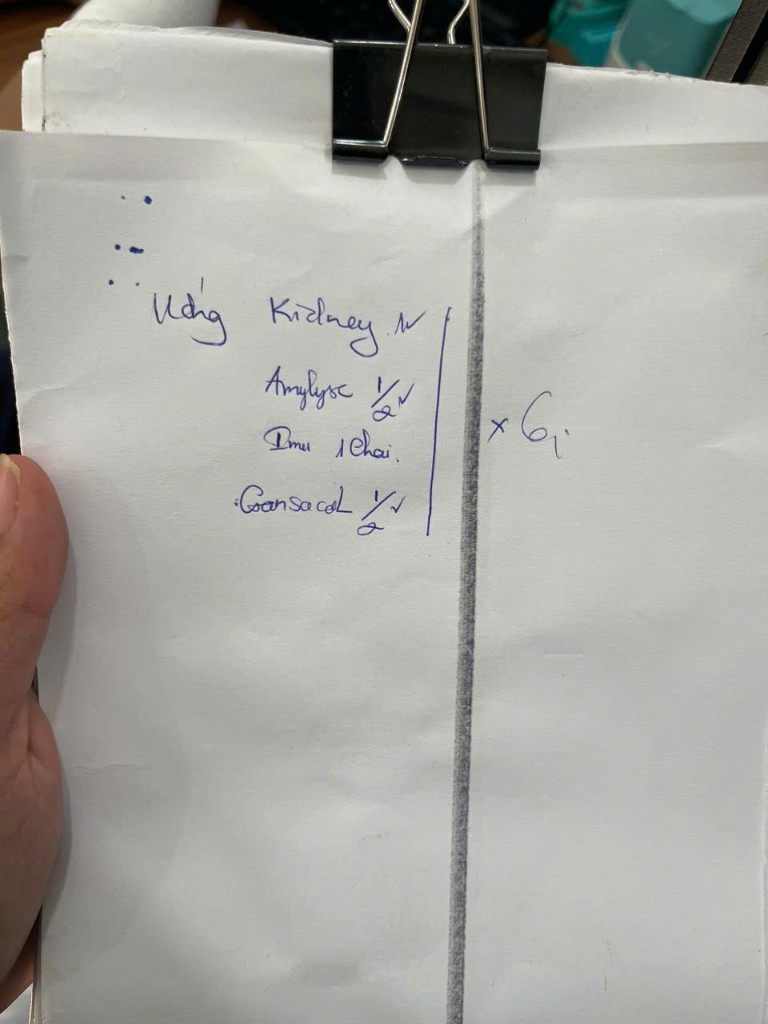 Uống Kidney 1v
Amylyse 1/2v
Imu 1 chai.
Gansacol 1/2v
x 6